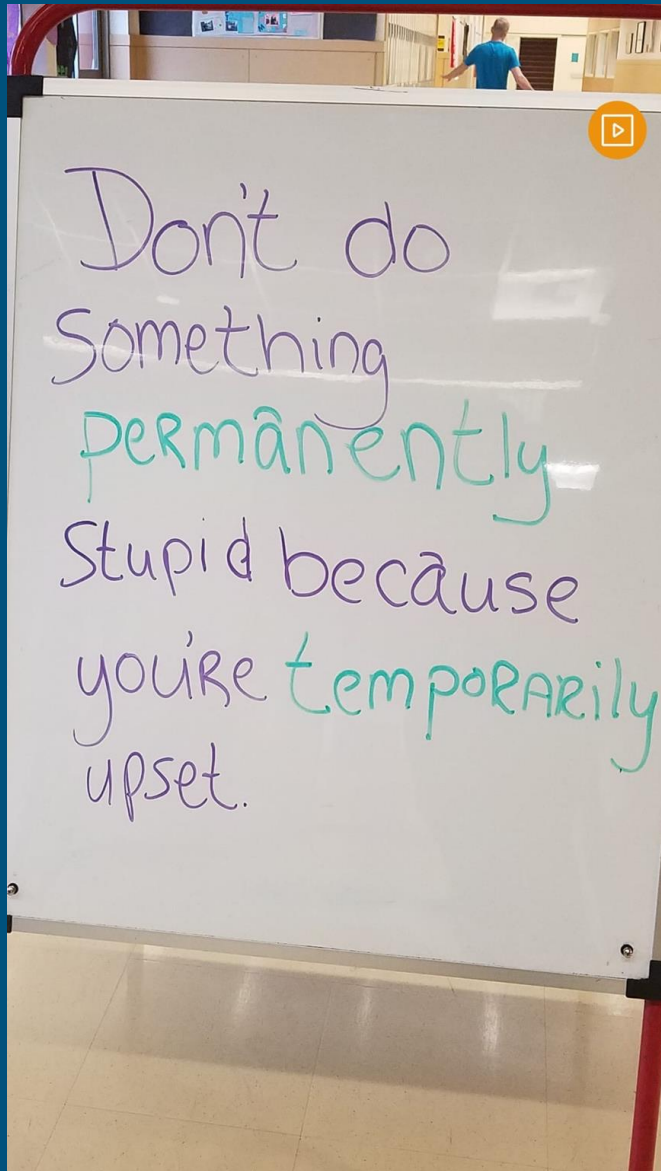 Don't do
Something
peRmanently
Stupid because
you'Re tempoRARily
upset.